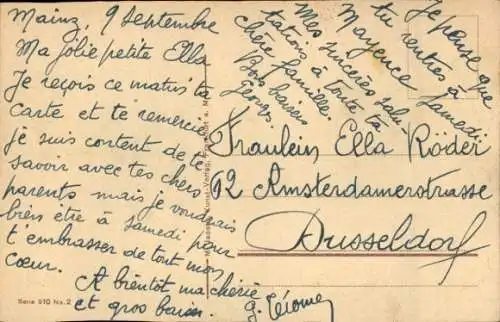 Mainz, 9 Septembre
Ma jolie petite Ella
Je reçois ce matin ta
carte et te remercie
je suis content de te
savoir avec tes chers
parents mais je voudrais
bien être à samedi pour
t'embrasser de tout mon
cœur.
A bientôt ma chérie
et gros baiser.
Je pense que
tu rentres à
Mayence samedi
Mes sincères salu-
tations à toute ta
chère famille.
Bons baisers
Fräulein Ella Röder
62 Amsterdamerstrasse
Düsseldorf
Serie 910 No. 2